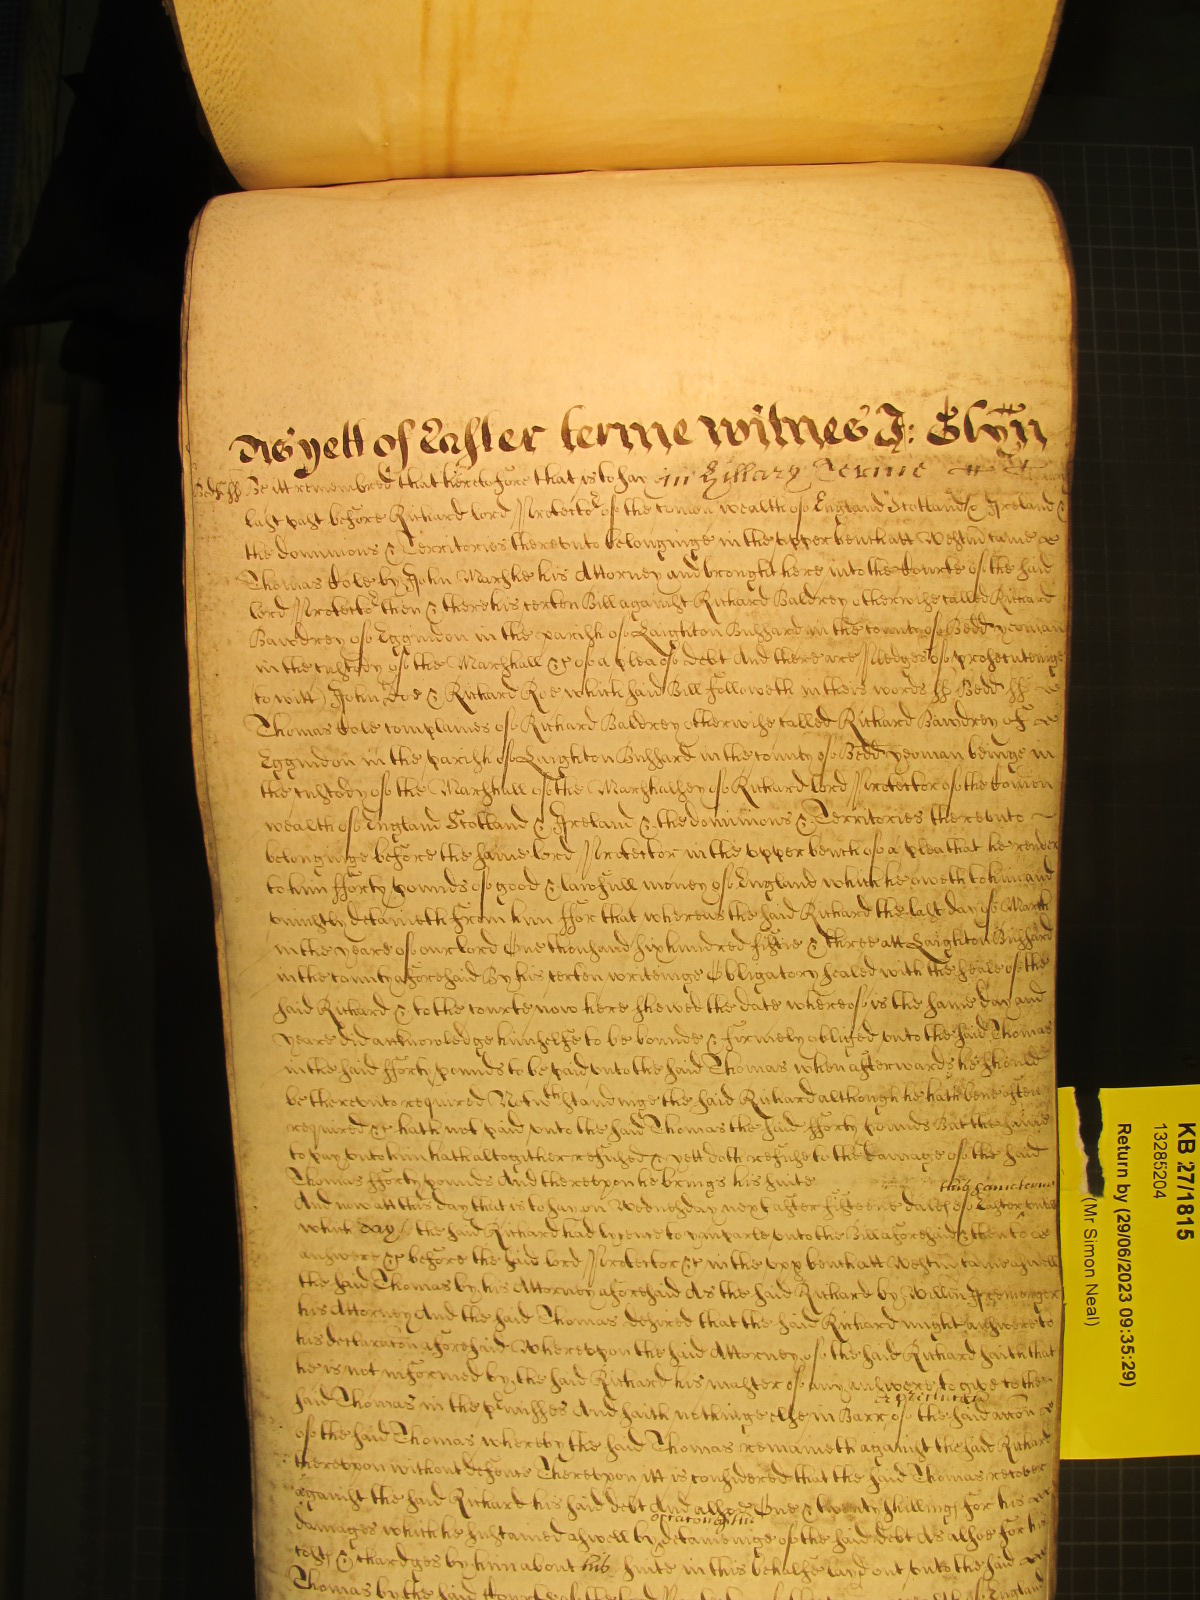 As yett of Easter terme witnes J: Glynn
Bedf ss Be itt remembred that heretofore that is to say in Hillary Terme
last past before Richard lord Protector of the comon wealth of England Scotland & Ireland &
the dominions & Territories thereunto belonginge in the upper bench att Westm came
Thomas Cole by John Marshe his Attorney and brought here into the Courte of the said
lord Protector then & there his certen Bill against Richard Baldrey otherwise called Richard
Bawdrey of Eggindon in the parish of Laighton Bussard in the county of Bedd yeoman
in the custody of the Marshall &c of a plea of debt And there are Pledges of prosecuteinge
to witt John Doe & Richard Roe which said Bill followeth in theis words ss Bedd ss
Thomas Cole complaines of Richard Baldrey otherwise called Richard Bawdrey of
Eggindon in the parish of Laighton Bussard in the county of Bedd yeoman beinge in
the custody of the Marshall of the Marshalsey of Richard lord Protector of the Comon
wealth of England Scotland & Ireland & the dominions & Territories thereunto
belonginge before the same lord Protector in the upper bench of a plea that he render
to him fforty pounds of good & lawfull money of England which he oweth to him and
uniustly detaineth from him ffor that whereas the said Richard the last day of March
in the yeare of our lord One thousand six hundred fiftie & three att Laighton Bussard
in the county aforesaid By his certen writeinge Obligatory sealed with the seale of the
said Richard & to the courte now here shewed the date whereof is the same day and
yeare did acknowledge himselfe to be bounde & firmely obliged unto the said Thomas
in the said fforty pounds to be paid unto the said Thomas when afterwards he should
be thereunto required Notwthstandinge the said Richard although he hath bene often
required &c hath not paid unto the said Thomas the said fforty pounds But the same
to pay unto him hath altogether refused & yett doth refuse to the damage of the said
Thomas fforty pounds And thereupon he brings his suite
this same terme
And now att this day that is to say on Wednesday next after fifteene daies of Easter untill
which day the said Richard had lycence to imparle unto the Bill aforesaid & then to
answere &c before the said lord Protector &c in the upp bench att Westm came aswell
the said Thomas by his Attorney aforesaid As the said Richard by Willm Iremonger
his Attorney And the said Thomas desired that the said Richard might answere to
his declaracon aforesaid Whereupon the said Attorney of the said Richard saith that
he is not informed by the said Richard his master of any answere to give to the
said Thomas in the pmisses And saith nothinge else in Barr of the said accon
of the said Thomas whereby the said Thomas remaineth against the said Richard
thereupon without defence Thereupon itt is considered that the said Thomas recover
against the said Richard his said debt And alsoe One & twenty shillings for his
occasion of the
damages which he sustained aswell by detaineinge of the said debt As alsoe for his
costs & chardges by him about his suite in this behalfe layd out unto the said
Thomas by the said Courte of the England
KB 27/1815
13285204
Return by (29/06/2023 09:35:29)
(Mr Simon Neal)